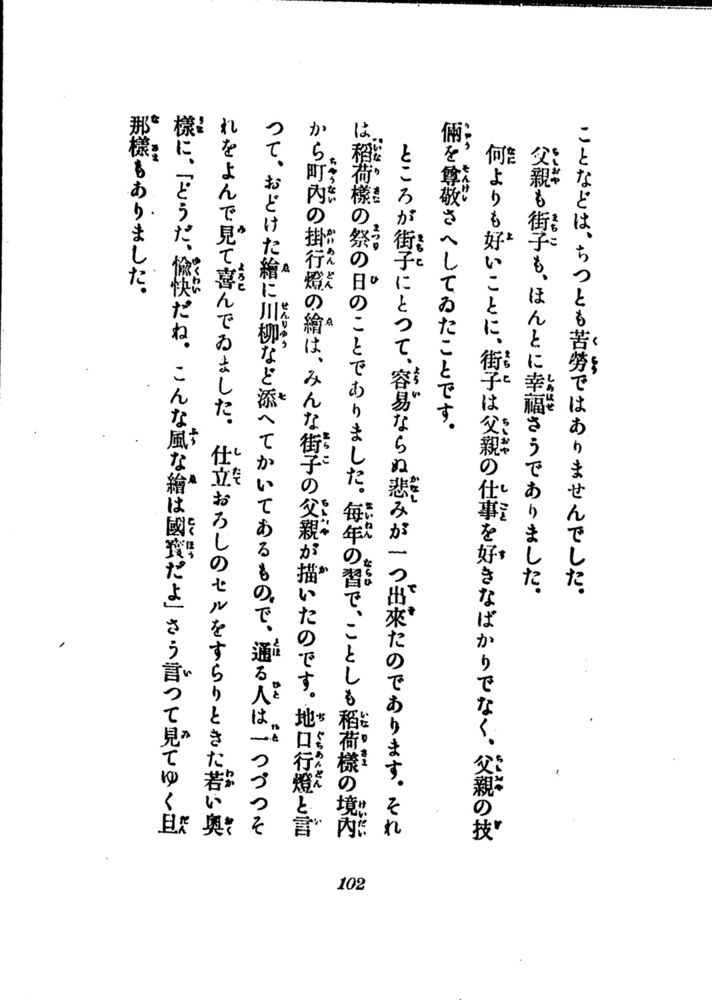 ことなどは、ちつとも苦勞ではありませんでした。
父親も街子も、ほんとに幸福さうでありました。
何よりも好いことに、街子は父親の仕事を好きなばかりでなく、父親の技
倆を尊敬さへしてゐたことです。
ところが街子にとつて、容易ならぬ悲みが一つ出來たのであります。それ
は稻荷樣の祭の日のことでありました。每年の習で、ことしも稻荷樣の境內
から町內の掛行燈の繪は、みんな街子の父親が描いたのです。地口行燈と言
つて、おどけた繪に川柳など添へてかいてあるもので、通る人は一つづつそ
れをよんで見て喜んでゐました。仕立おろしのセルをすらりときた若い奧
樣に、「どうだ、愉快だね。こんな風な繪は國寶だよ」さう言つて見てゆく旦
那樣もありました。
102